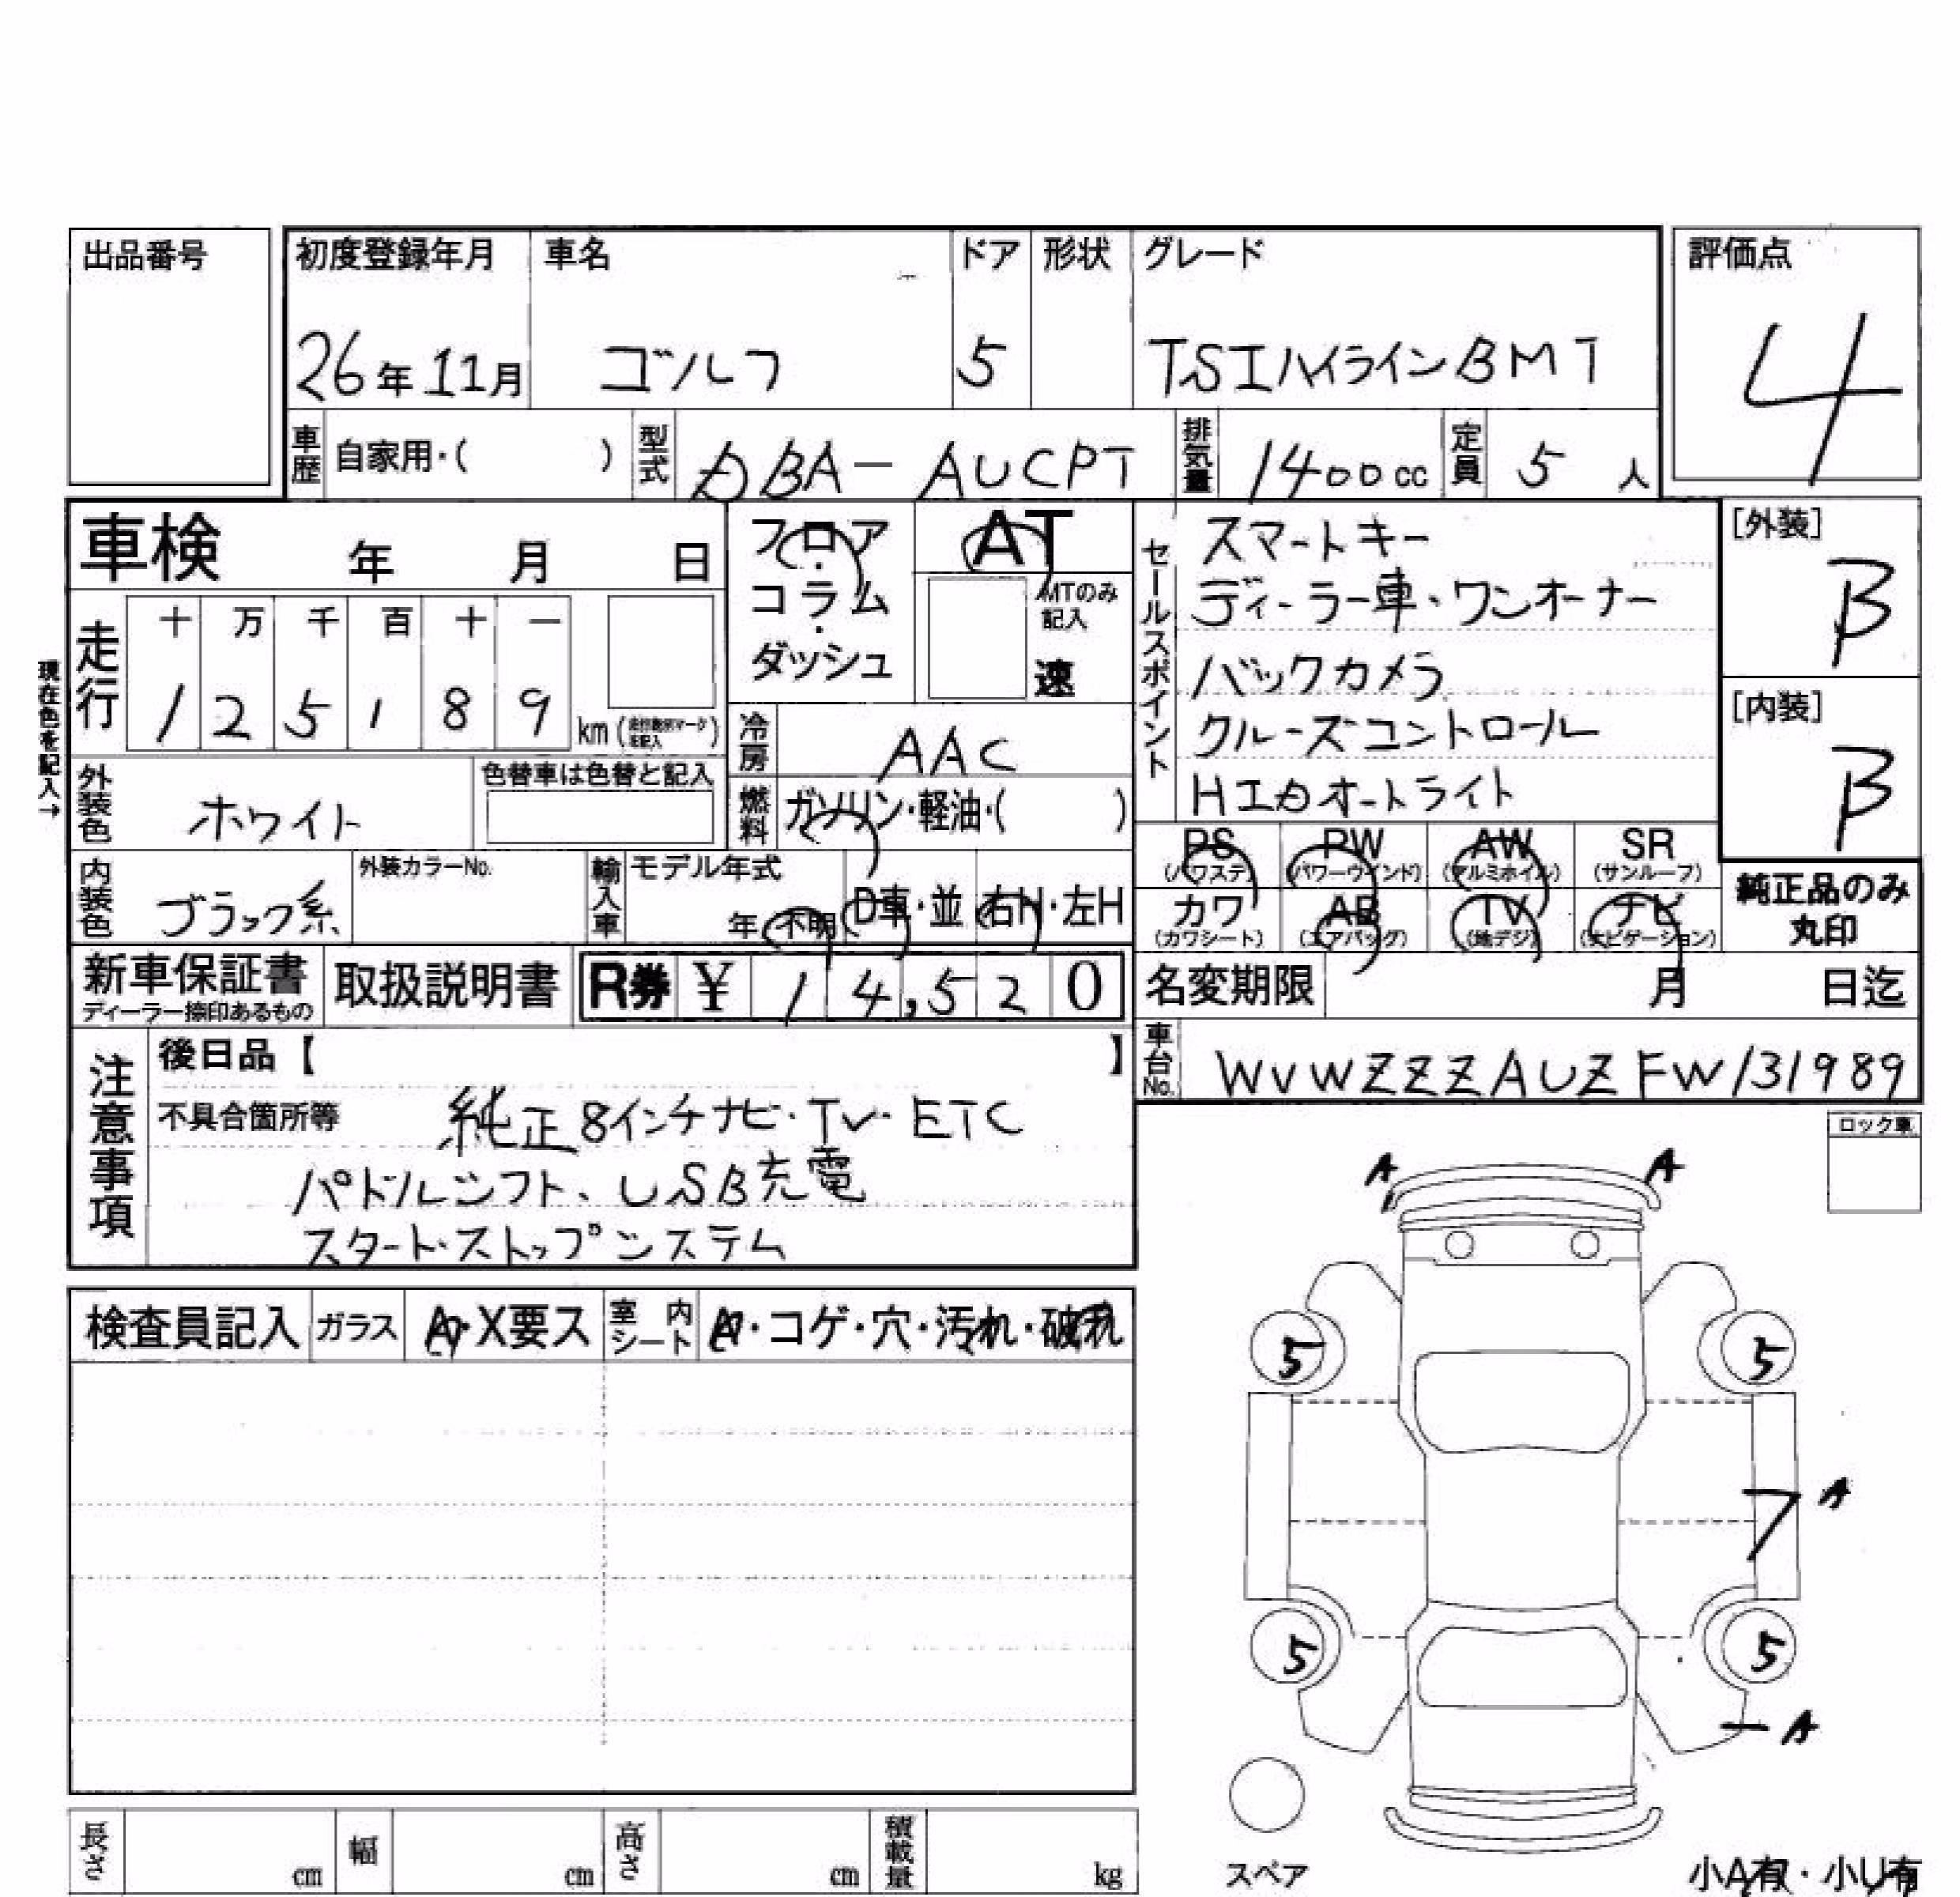 出品番号
初度登録年月 車名 ドア 形状 グレード
評価点
26年11月 ゴルフ 5 TSIハイラインBMT
4
車歴 自家用・( ) 型式 DBA-AUCPT 排気量 1400cc 定員 5人
車検 年 月 日
フロア・コラム・ダッシュ
AT
MTのみ記入
速
現在色を記入→
走行 十 万 千 百 十 一
1 2 5 1 8 9 km
冷房 AAC
外装色 ホワイト 色替車は色替と記入
燃料 ガソリン・軽油・( )
内装色 ブラック系 外装カラーNo. 輸入車 モデル年式
年 不明 D車・並 右H・左H
セールスポイント
スマートキー
ディーラー車・ワンオーナー
バックカメラ
クルーズコントロール
HIDオートライト
[外装]
B
[内装]
B
PS (パワステ) PW (パワーウインド) AW (アルミホイル) SR (サンルーフ)
カワ (カワシート) AB (エアバッグ) TV (地デジ) ナビ (ナビゲーション)
純正品のみ
丸印
新車保証書 ディーラー捺印あるもの 取扱説明書 R券 ¥ 14,520
名変期限 月 日迄
車台No. WVWZZZAUZFW131989
注意事項
後日品【 】
不具合箇所等 純正8インチナビ・TV・ETC
パドルシフト、USB充電
スタート・ストップシステム
ロック車
A A
検査員記入 ガラス A・X要ス 室内シート A・コゲ・穴・汚れ・破れ
5 5
A
5 5
A
スペア
小A有・小U有
長さ cm 幅 cm 高さ cm 積載量 kg